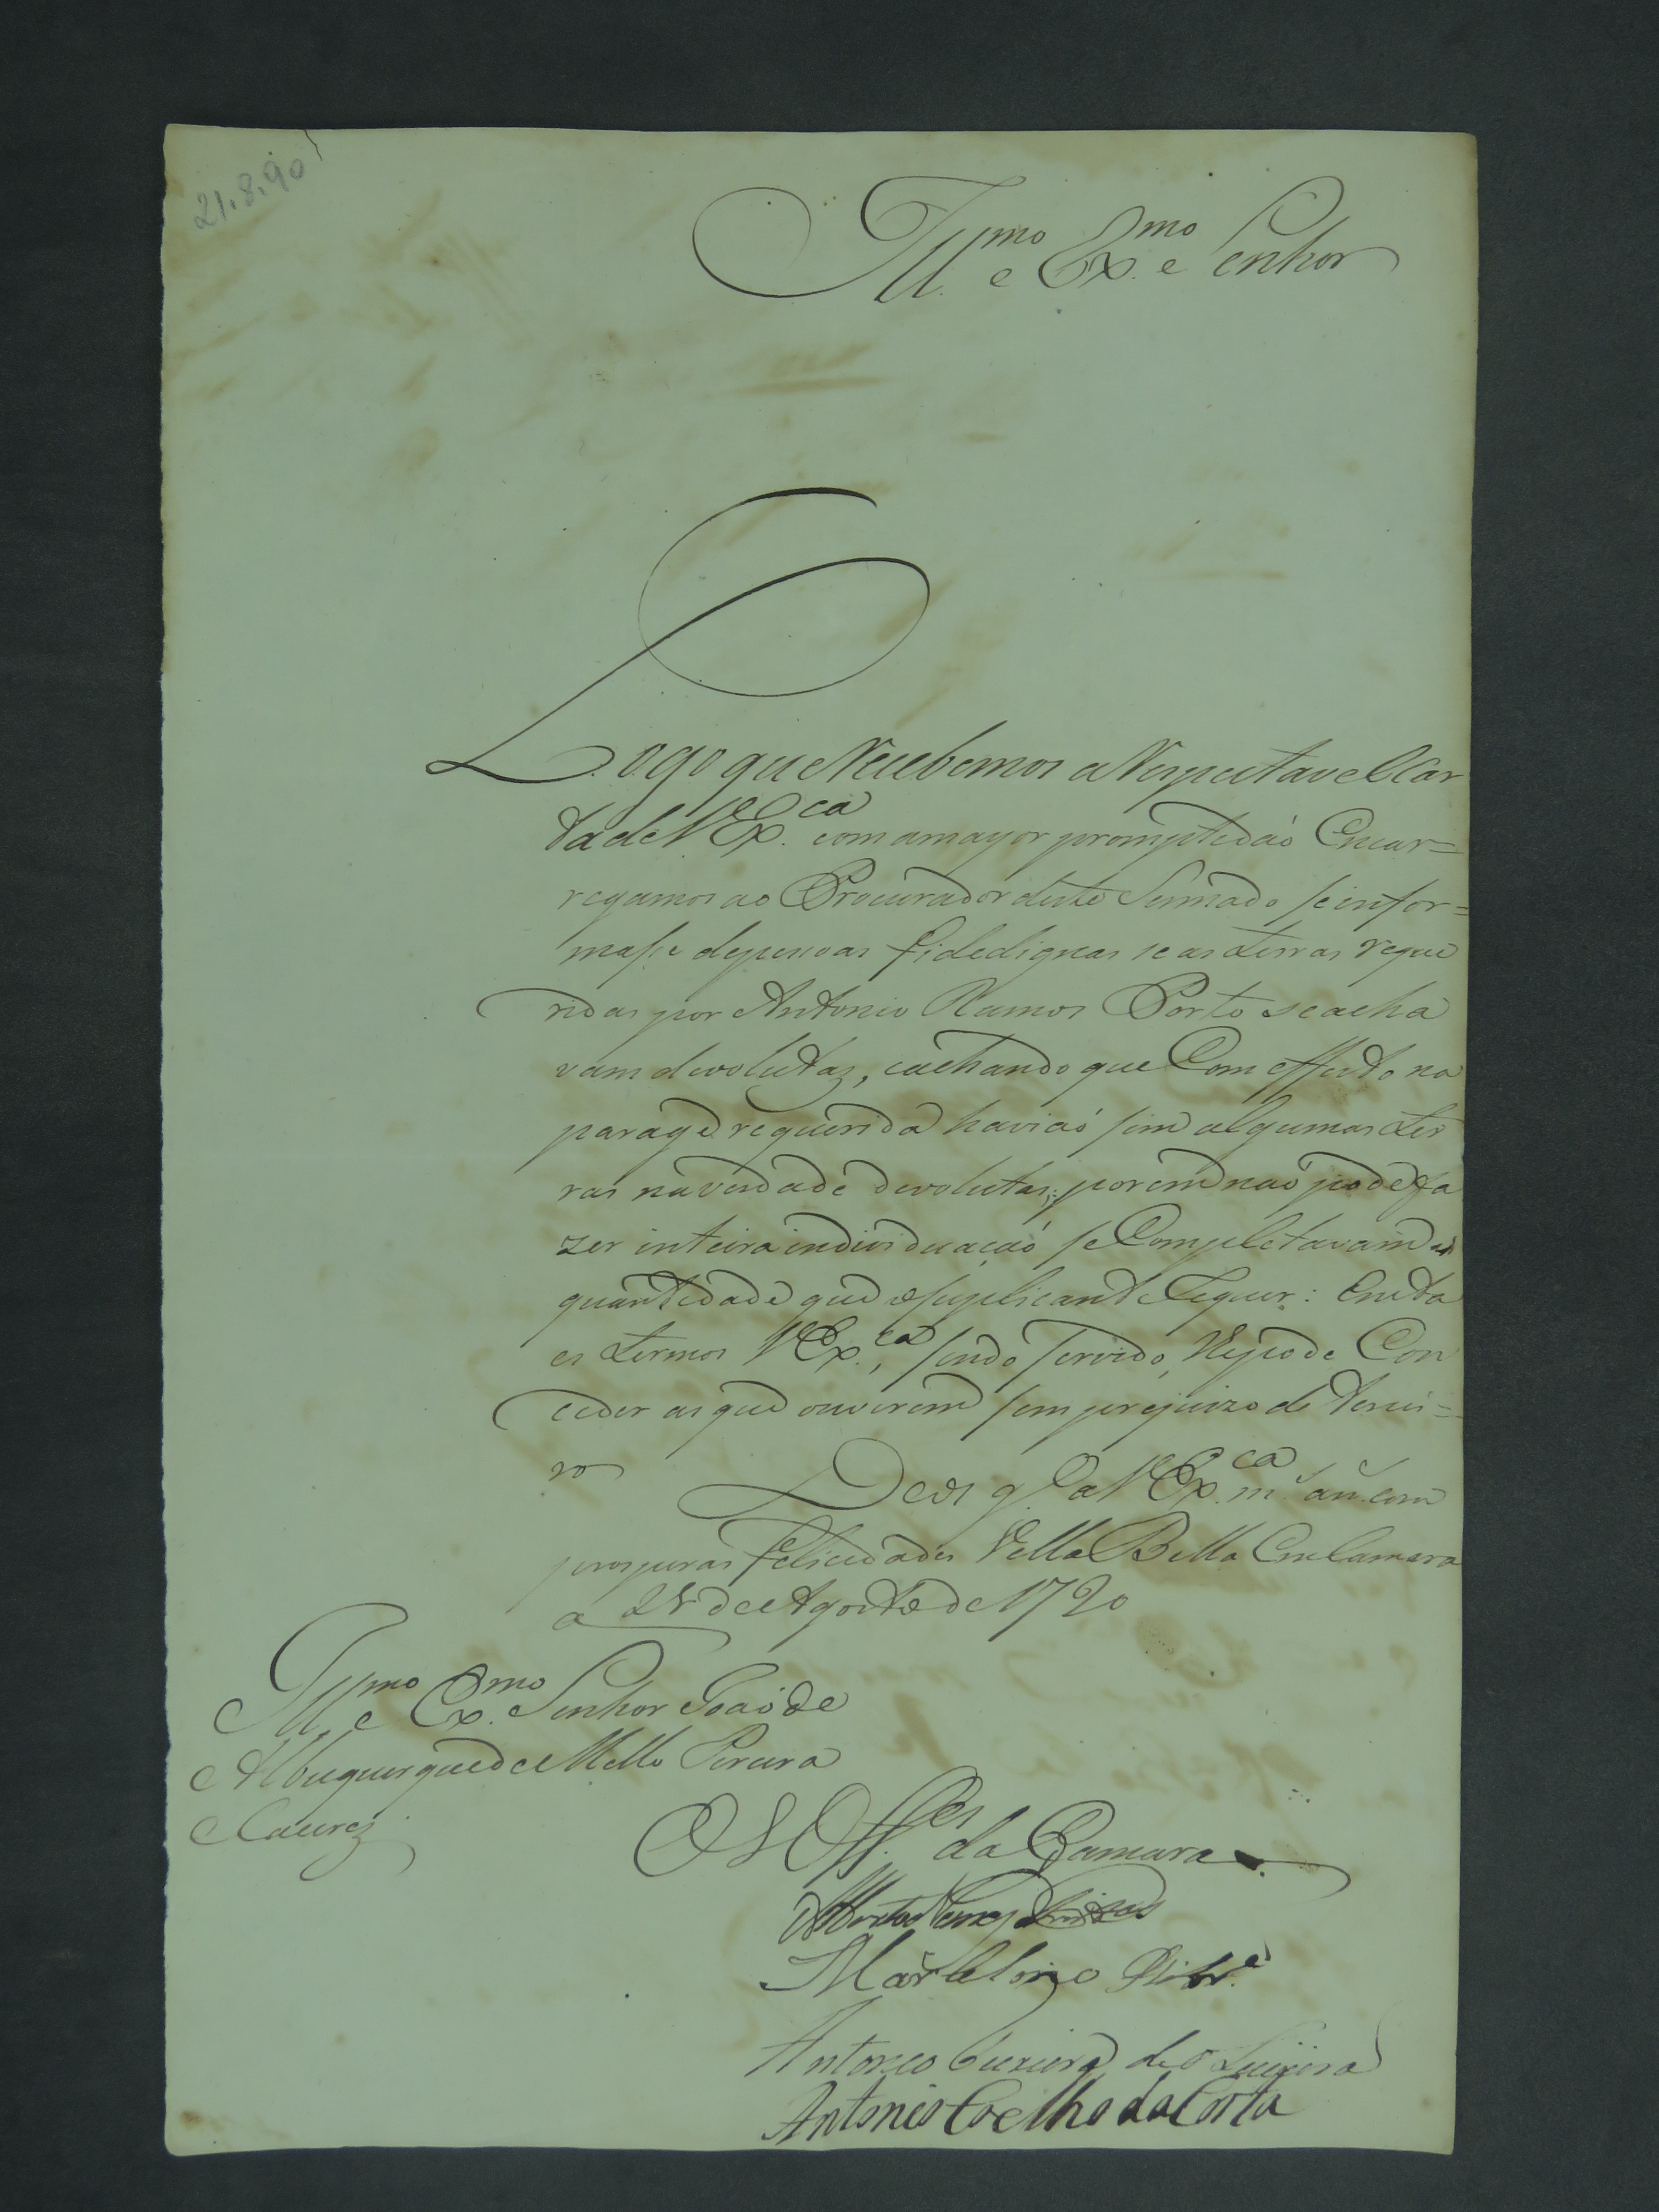 21.8.90
Ill.mo e Ex.mo Senhor
Logo que Recebemos a Respeitavel Car
ta de V Ex.ca com a mayor promptidaõ Encar=
regamos ao Procurador deste Sennado se infor=
masse de pessoas fidedignas se as terras reque
ridas por Antonio Ramos Porto se acha
vam devolutaz, e achando que Com effeito na
parage requerida haviaõ sim algumas ter
ras na verdade devolutas; porem naõ pode fa
zer inteira individuaçaõ se Completavam a
quantidade que o suplicante Requer: Em ta
es termos V Ex.ca, sendo servido, lhe pode Con
ceder as que ouverem sem prejuizo de tercei=
ro
Deos g.e a V Ex.ca m.s an.s com
prosperas felicidades Villa Bella Em Camara
a 21 de Agosto de 1790
Ill.mo e Ex.mo Senhor Joaõ de
Albuquerque de Mello Pereira
e Cacerez
Os Off.es da Camara
Marcelino Ribr.o
Antonio Teixera de
Antonio Coelho da Costa